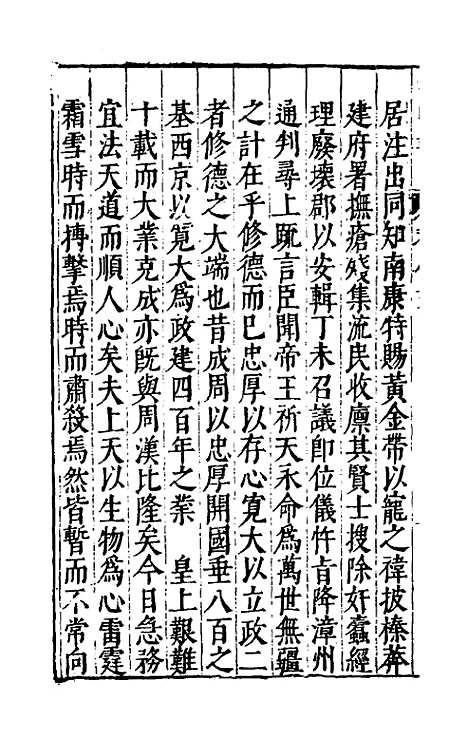 居注出同知南康特賜黃金帶以寵之禕披榛莽
建府署撫瘡殘集流民收廪其賢士搜除奸蠧經
理廢壊郡以安輯丁未召議即位儀忤旨降漳州
通判尋上䟽言臣聞帝王祈天永命爲萬世無疆
之計在乎修德而已忠厚以存心寛大以立政二
者修德之大端也昔成周以忠厚開國垂八百之
基西京以寛大爲政建四百年之業　皇上艱難
十載而大業克成亦旣與周漢比隆矣今日急務
宜法天道而順人心矣夫上天以生物爲心雷霆
霜雪時而摶擊焉時而肅殺焉然皆暫而不常向